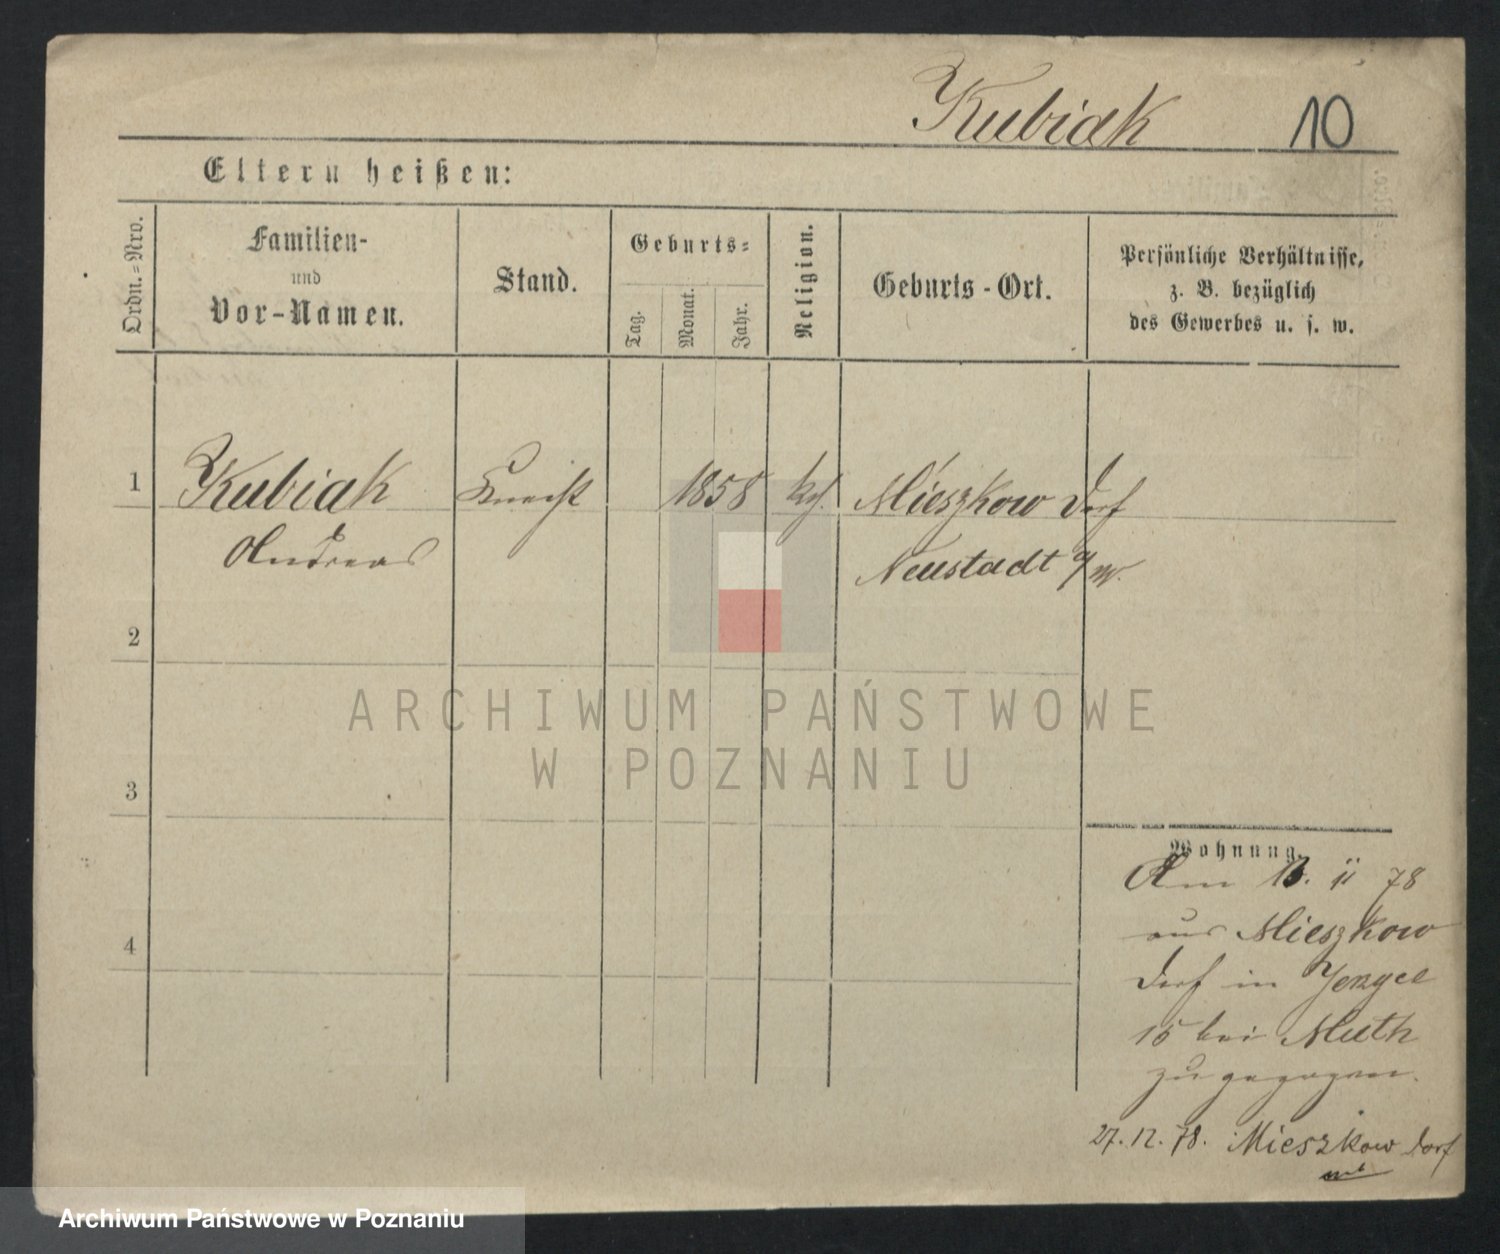 Kubiak 10
Eltern heißen:
Ordn.=Nro.
Familien-
und
Vor-Namen.
Stand.
Geburts=
Tag.
Monat.
Jahr.
Religion.
Geburts-Ort.
Persönliche Verhältnisse,
z. B. bezüglich
des Gewerbes u. s. w.
1 Kubiak Knecht 1858 kth. Mieszkow Dorf
Andreas Neustadt a/W.
2
3
4
Wohnung.
Am 13. 11 78
aus Mieszkow
Dorf in
15 bei Muth
zugezogen.
27.12.78. Mieszkow Dorf
ARCHIWUM PAŃSTWOWE
W POZNANIU
Archiwum Państwowe w Poznaniu